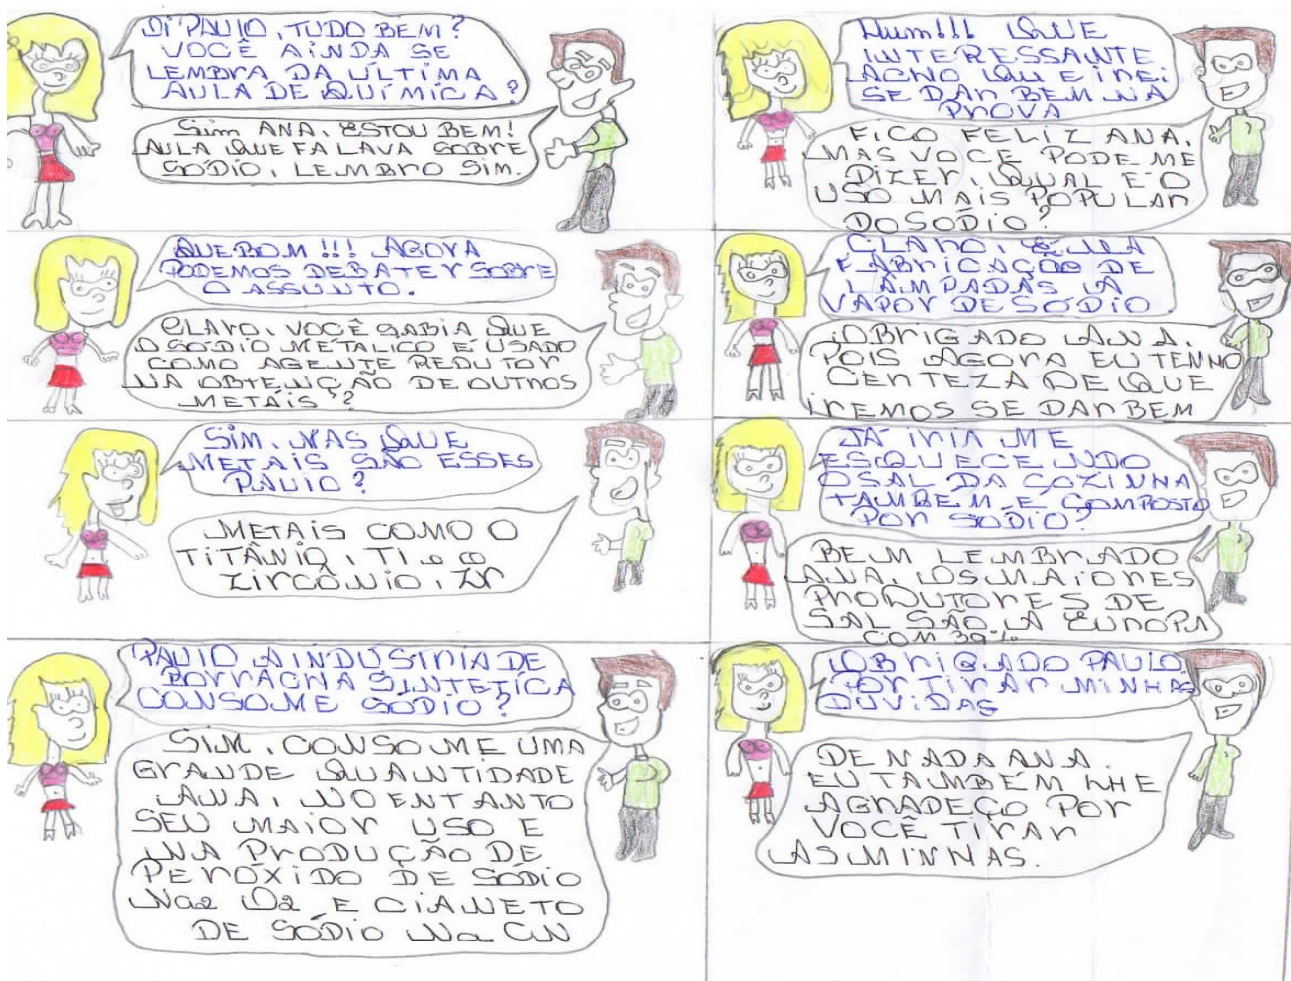 Oi PAULO, TUDO BEM?
VOCÊ AINDA SE
LEMBRA DA ÚLTIMA
AULA DE QUÍMICA?
Sim ANA, ESTOU BEM!
AULA QUE FALAVA SOBRE
SÓDIO, LEMBRO SIM.
QUE BOM!!! AGORA
PODEMOS DEBATER SOBRE
O ASSUNTO.
CLARO, VOCÊ SABIA QUE
O SÓDIO METALICO É USADO
COMO AGENTE REDUTOR
NA OBTENÇÃO DE OUTROS
METAIS?
SIM, MAS QUE
METAIS SÃO ESSES
PAULO?
METAIS COMO O
TITÂNIO, TI e o
ZIRCÔNIO, Zr
PAULO A INDUSTRIA DE
BORRACHA SINTETÍCA
CONSOME SÓDIO?
SIM, CONSOME UMA
GRANDE QUANTIDADE
ANA, NO ENTANTO
SEU MAIOR USO E
NA PRODUÇÃO DE
PERÓXIDO DE SÓDIO
Na2 O2 E CIANETO
DE SÓDIO Na CN
Hum!!! QUE
INTERESSANTE
ACHO QUE IREI
SE DAR BEM NA
PROVA
FICO FELIZ ANA,
MAS VOCE PODE ME
DIZER, QUAL É O
USO MAIS POPULAR
DO SÓDIO?
CLARO, É NA
FABRICAÇÃO DE
LÂMPADAS A
VAPOR DE SÓDIO
OBRIGADO ANA,
POIS AGORA EU TENHO
CERTEZA DE QUE
IREMOS SE DAR BEM
JÁ IRIA ME
ESQUECENDO
O SAL DA COZINHA
TAMBEM E COMPOSTO
POR SÓDIO?
BEM LEMBRADO
ANA, OS MAIORES
PRODUTORES DE
SAL SÃO A EUROPA
COM 39%
OBRIGADO PAULO
POR TIRAR MINHAS
DUVIDAS
DE NADA ANA.
EU TAMBÉM LHE
AGRADEÇO POR
VOCÊ TIRAR
AS MINHAS.